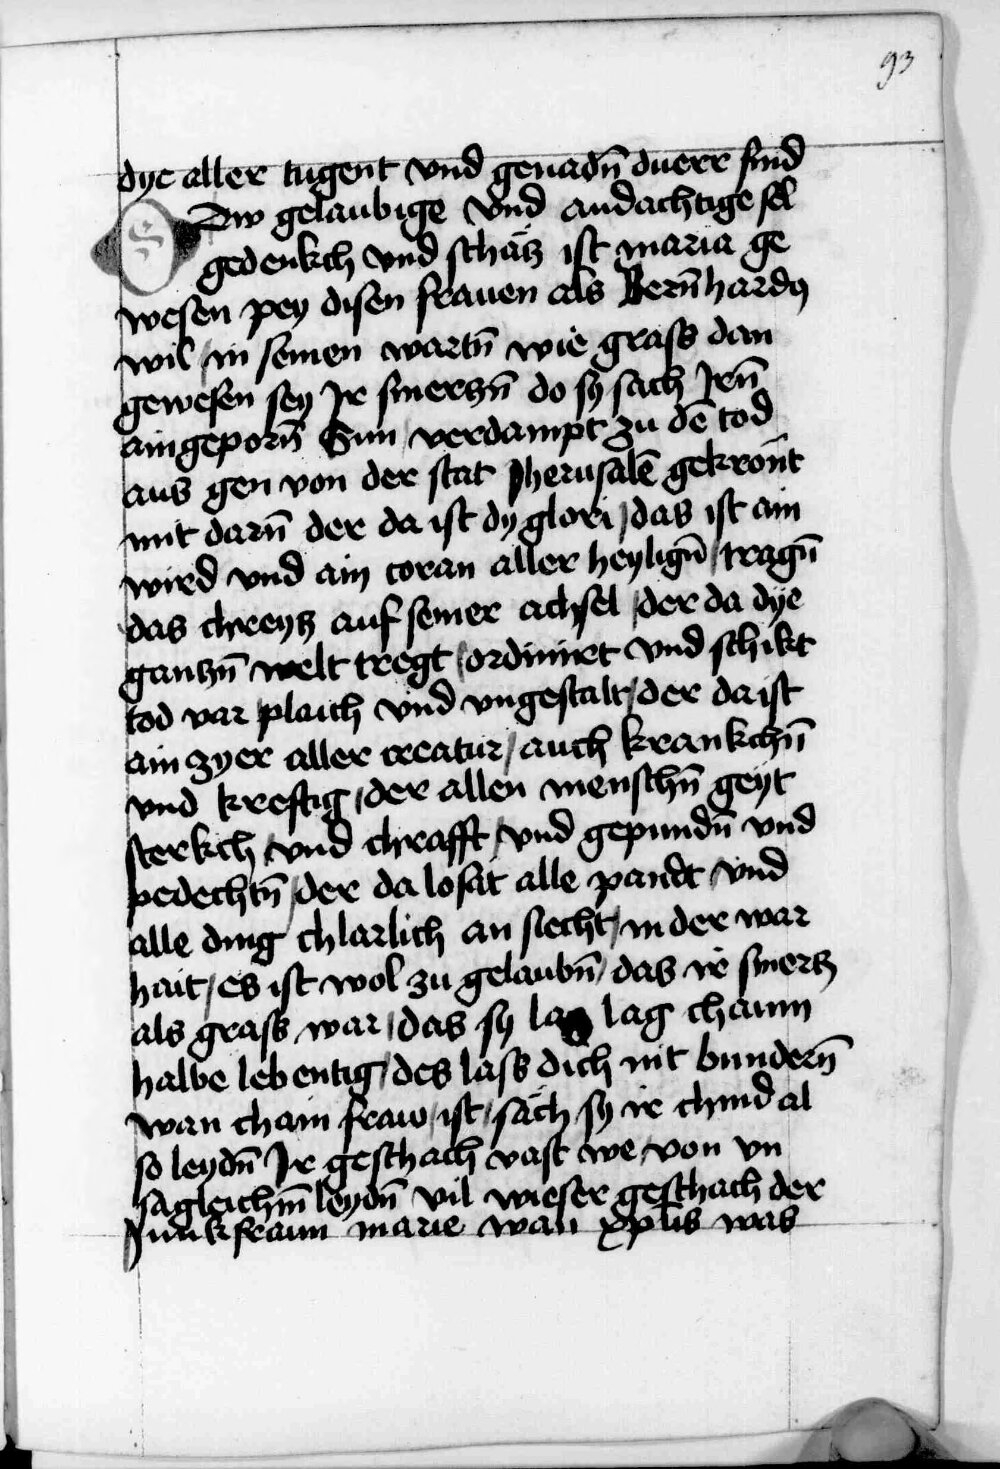 93
dye aller tugent vnd genadn̄ duerr sind
Dw gelaubige vnd andachtige sel
gedenkch vnd schätz ist maria ge
wesen pey disen frauen als Bern̄hardꝯ
wil / in seinen wartn̄ wie grass dan
gewesen sey Jr smerczn̄ do sy sach Jrn̄
aingeporn̄ Sun / verdampt zu dē tod
aus gen von der stat Jherusalē gekrönt
mit darn̄ der da ist dy glori / das ist ain
wird vnd ain coran aller heylign̄ / tragn̄
das chreytz auf seiner achsel / der da dye
gantzn̄ welt tregt / ordinirt vnd schikt
tod var / plaich vnd vngestalt / der da ist
ain zyer aller creatur / auch krankchn̄
vnd kreftig / der allen menschn̄ geyt
sterkch / vnd chrafft / vnd gepundn̄ vnd
pedechtn̄ / der da losät alle pandt / vnd
alle ding chlarlich an siecht / in der war
hait / es ist wol zu gelaubn̄ / das ir smertz
als grass war / das sy lag chaum
halbe lebentig / des lass dich nit bundern̄
wan chain fraw / ist / säch sy ir chind al
so leydn̄ Jr geschach vast we / von vn
sagleichn̄ leydn̄ vil wieser geschach der
Junkfraun marie wan xp̄us was